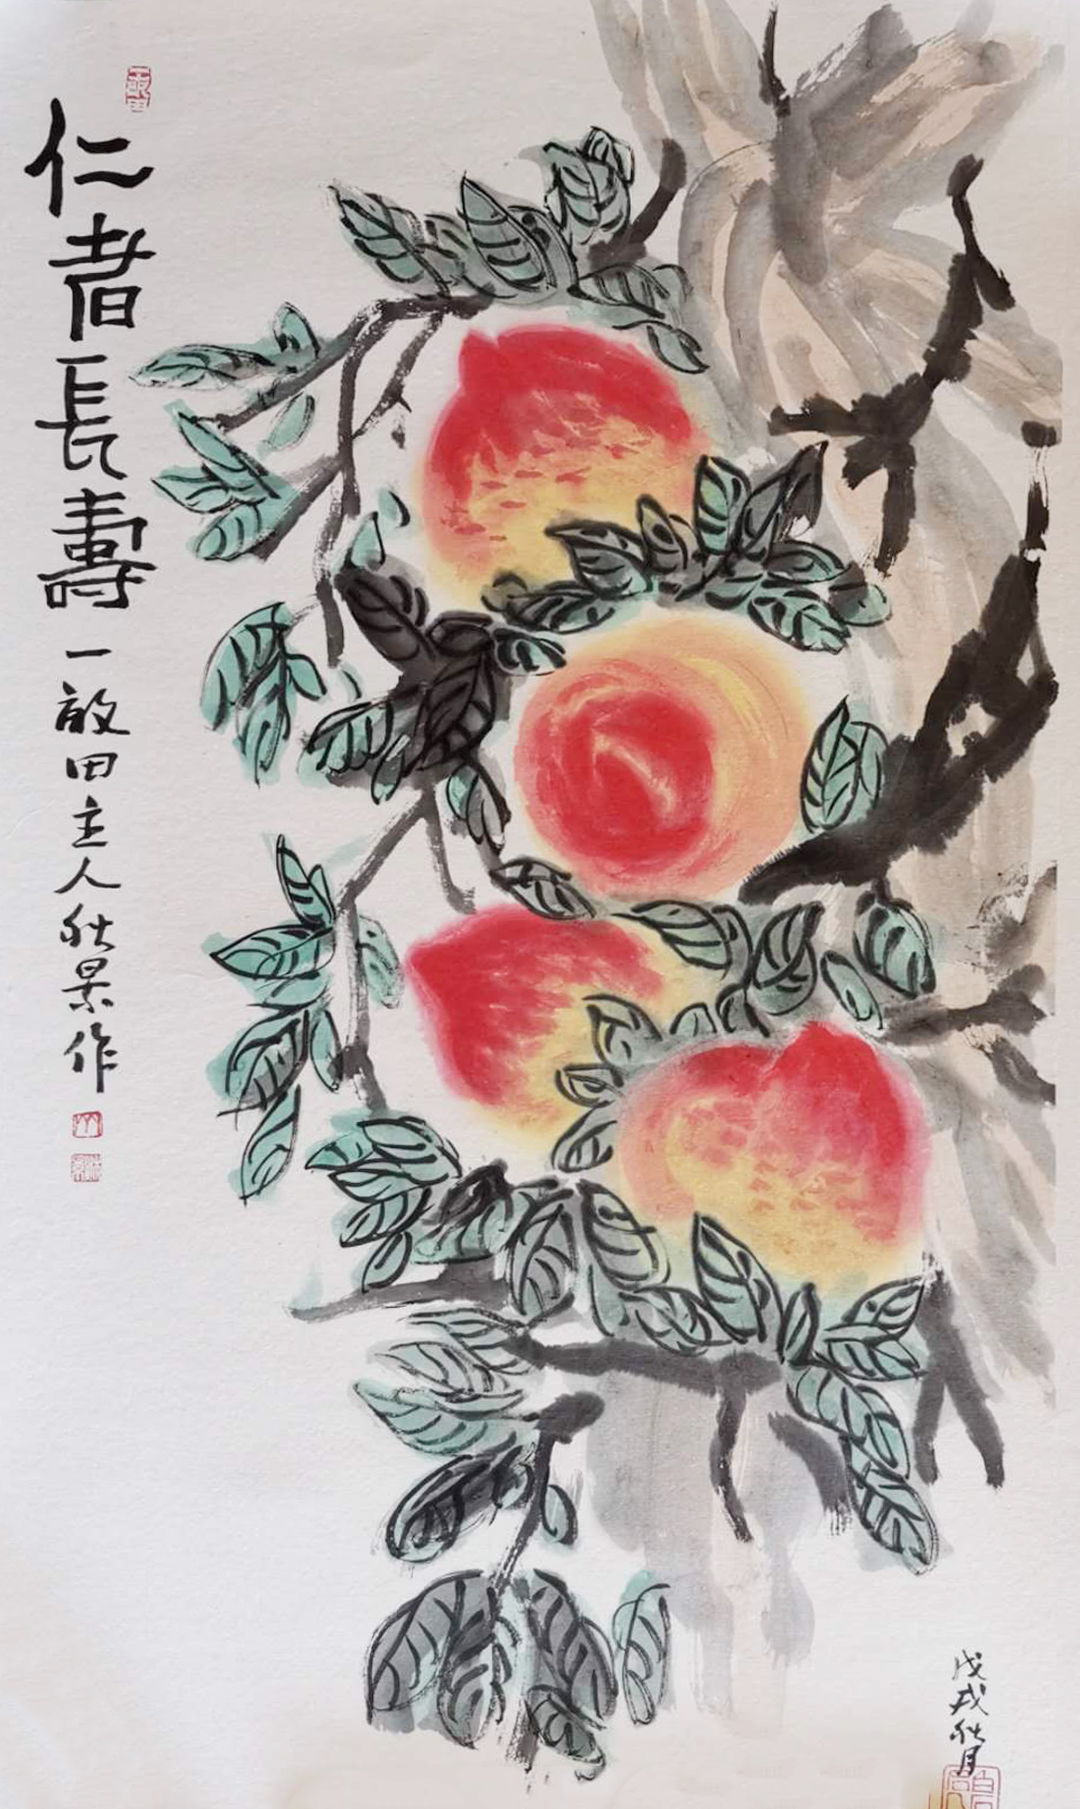 仁者長壽
一畝田主人秋景作
戊戌秋月